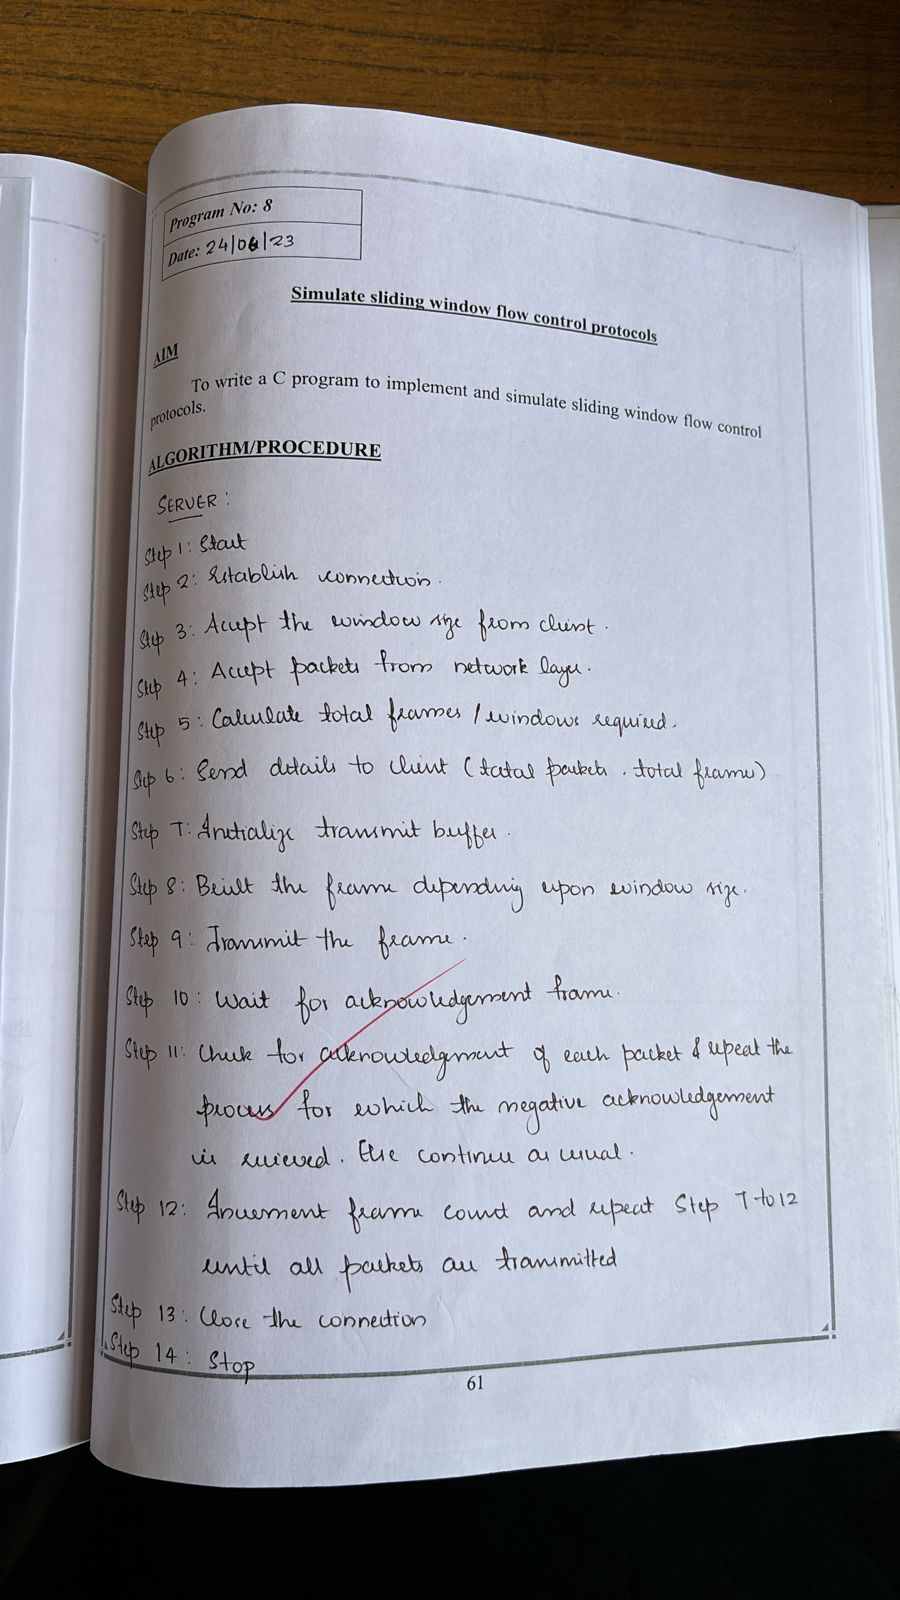 Program No: 8
Date: 24/06/23
Simulate sliding window flow control protocols
AIM
To write a C program to implement and simulate sliding window flow control
protocols.
ALGORITHM/PROCEDURE
SERVER:
Step 1: Start
Step 2: Establish connection.
Step 3: Accept the window size from client.
Step 4: Accept packets from network layer.
Step 5: Calculate total frames / windows required.
Step 6: Send details to client (total packets, total frames)
Step 7: Initialize transmit buffer.
Step 8: Built the frame depending upon window size.
Step 9: Transmit the frame.
Step 10: Wait for acknowledgement frame.
Step 11: Check for acknowledgment of each packet & repeat the
process for which the negative acknowledgement
is recieved. Else continue as usual.
Step 12: Increment frame count and repeat Step 7 to 12
until all packets are transmitted
Step 13: Close the connection
Step 14: Stop
61